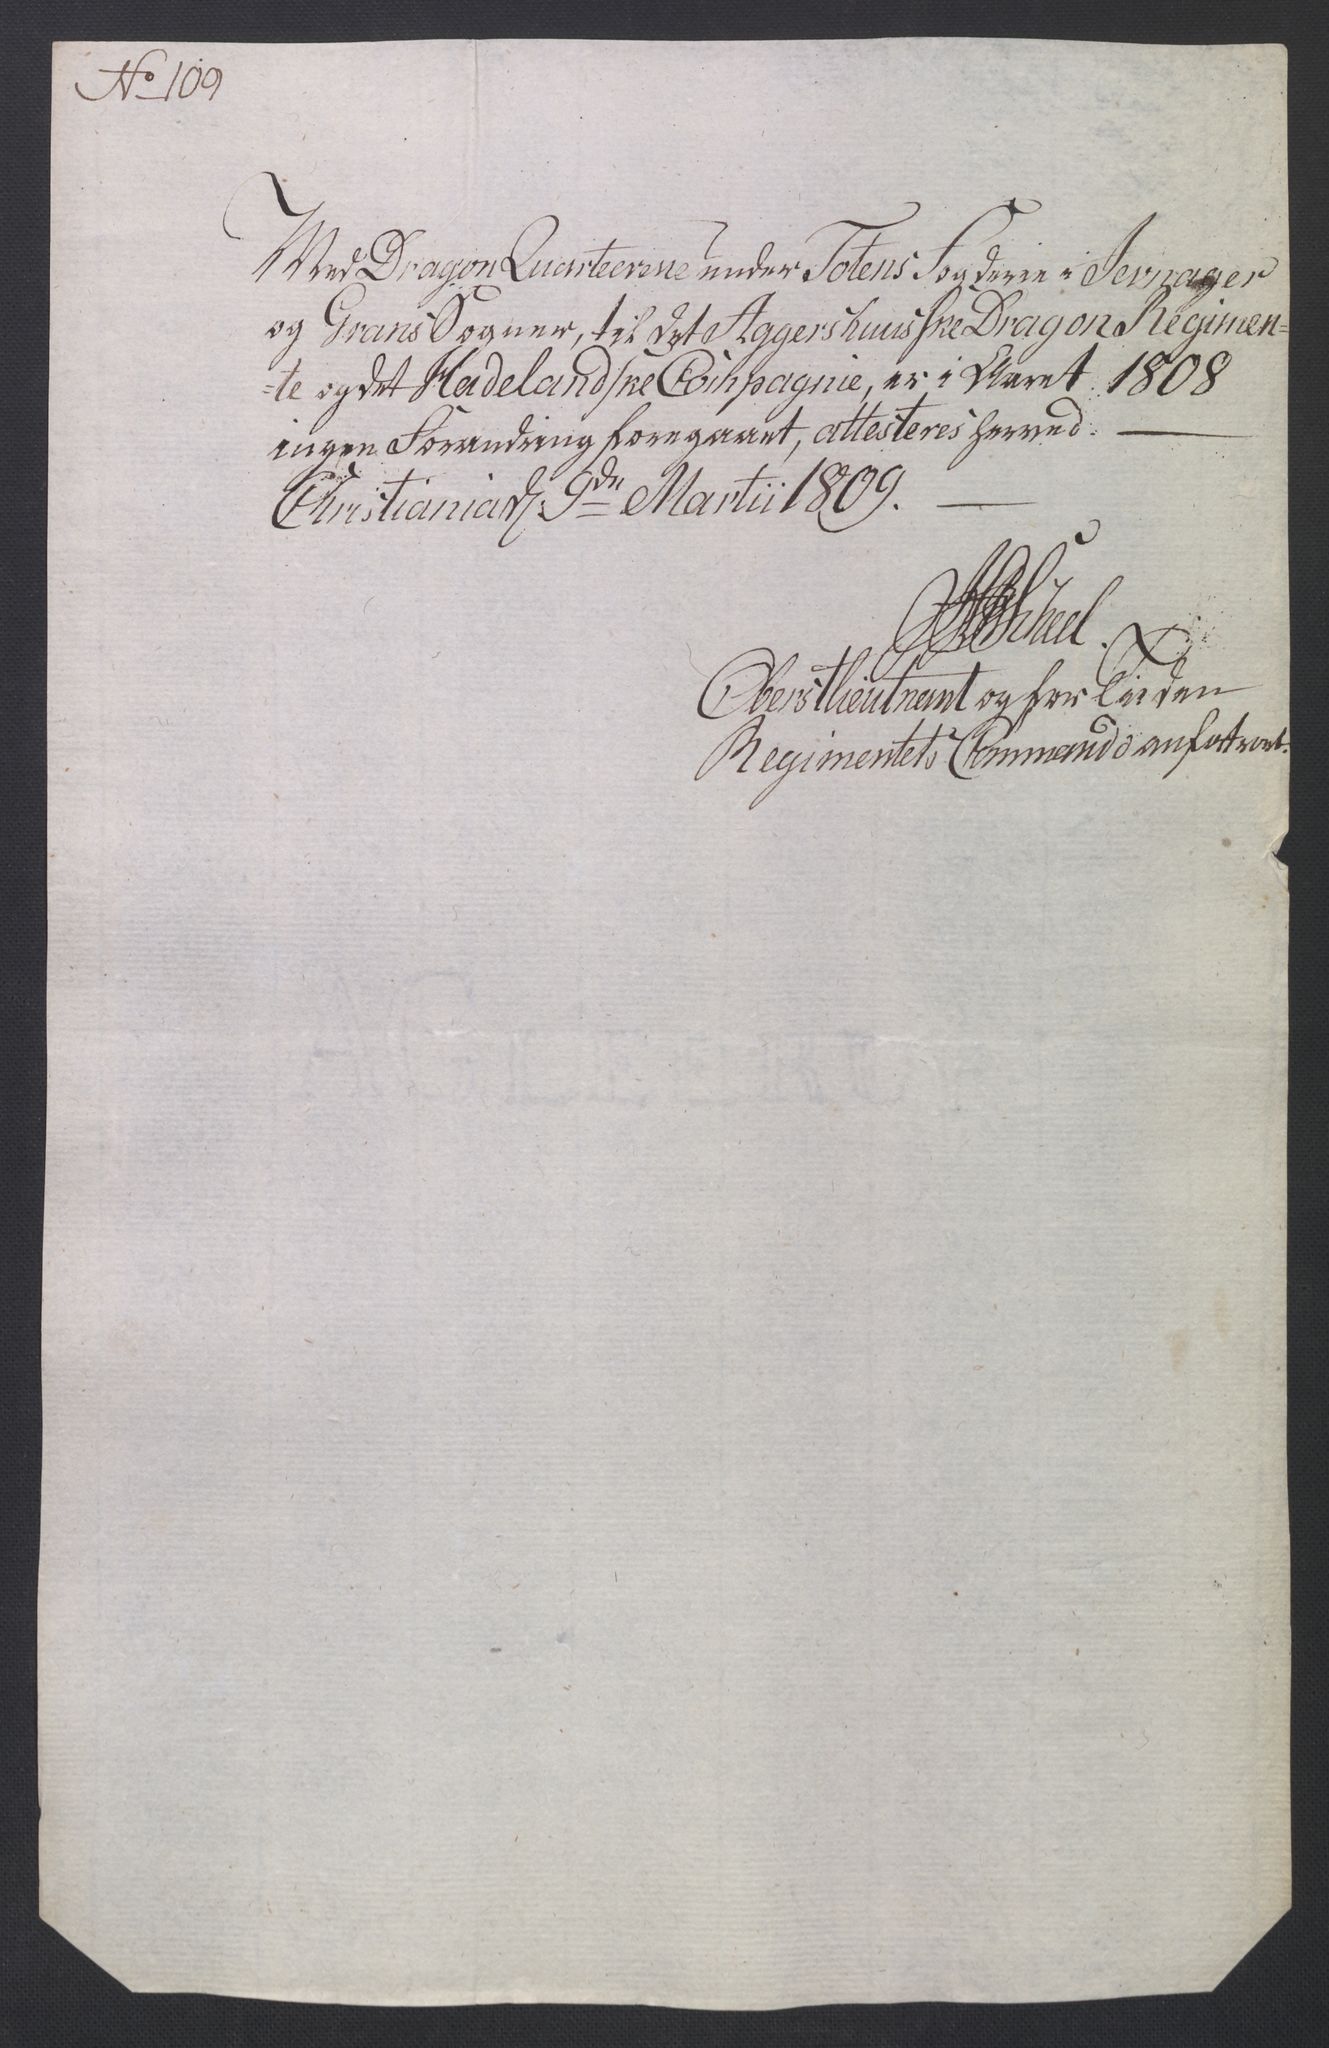 No 109
Wed Dragon Quarteerene under Totens Fogderie i Jevnager
og Grans Sogner, til det Aggershuusske Dragon Regimen=
=te og det Hadelandske Compagnie, er i Aaret 1808
ingen Forandring foregaaet, attesteres herved. —
Christiania d. 9de Martii 1809. —
Scheel.
Oberstlieutnant og for Tiden
Regimentets Commando anfortroet.